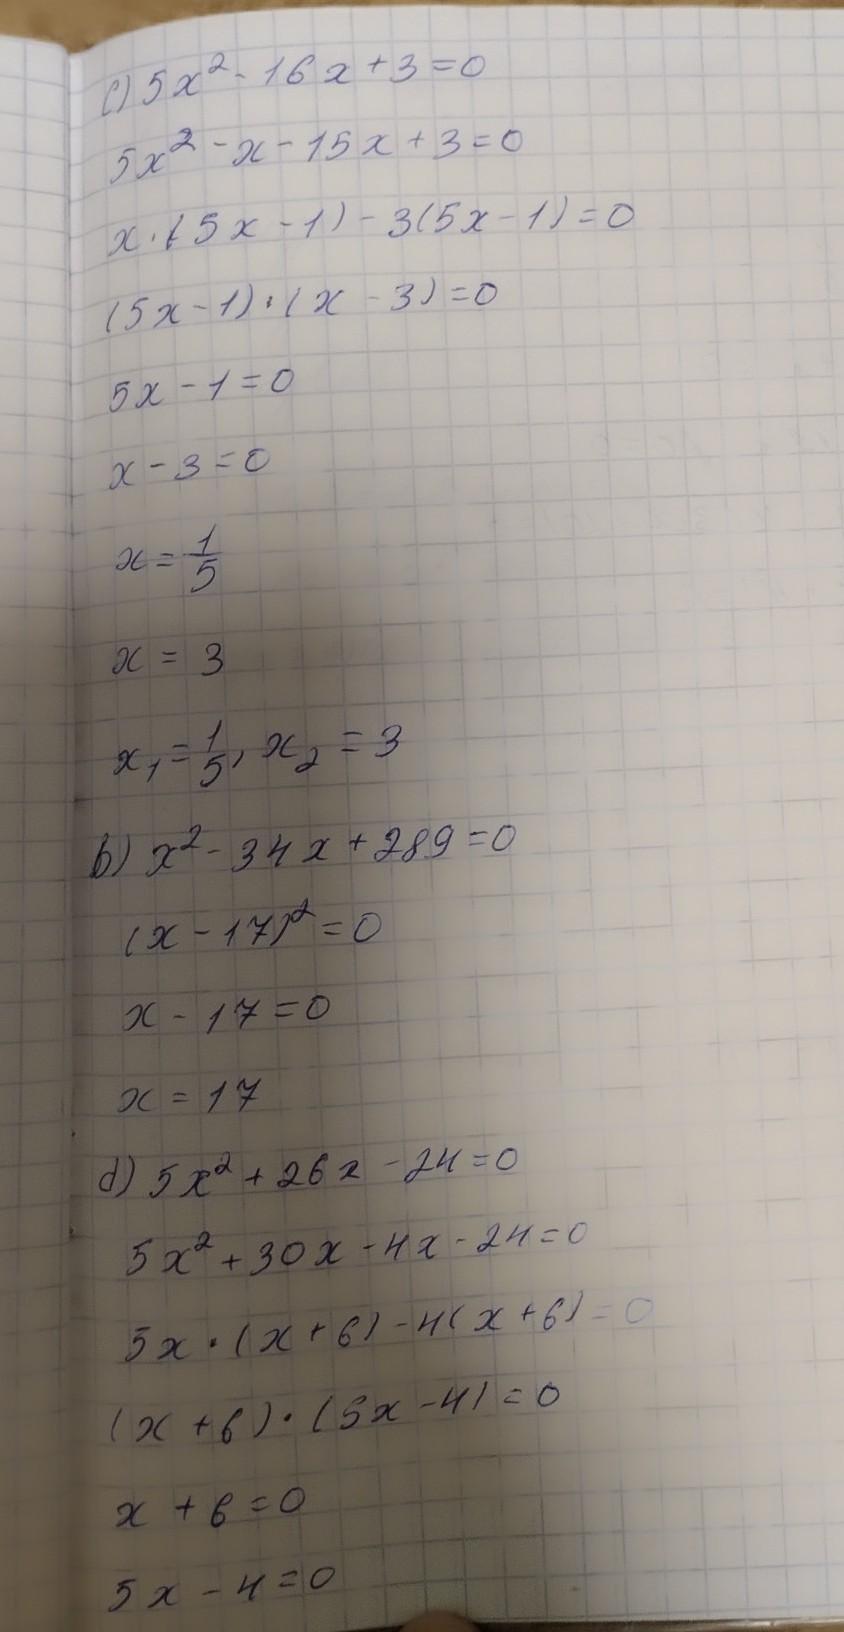 c) 5x² - 16x + 3 = 0
5x² - x - 15x + 3 = 0
x · (5x - 1) - 3(5x - 1) = 0
(5x - 1) · (x - 3) = 0
5x - 1 = 0
x - 3 = 0
x = 1/5
x = 3
x₁ = 1/5, x₂ = 3
b) x² - 34x + 289 = 0
(x - 17)² = 0
x - 17 = 0
x = 17
d) 5x² + 26x - 24 = 0
5x² + 30x - 4x - 24 = 0
5x · (x + 6) - 4(x + 6) = 0
(x + 6) · (5x - 4) = 0
x + 6 = 0
5x - 4 = 0